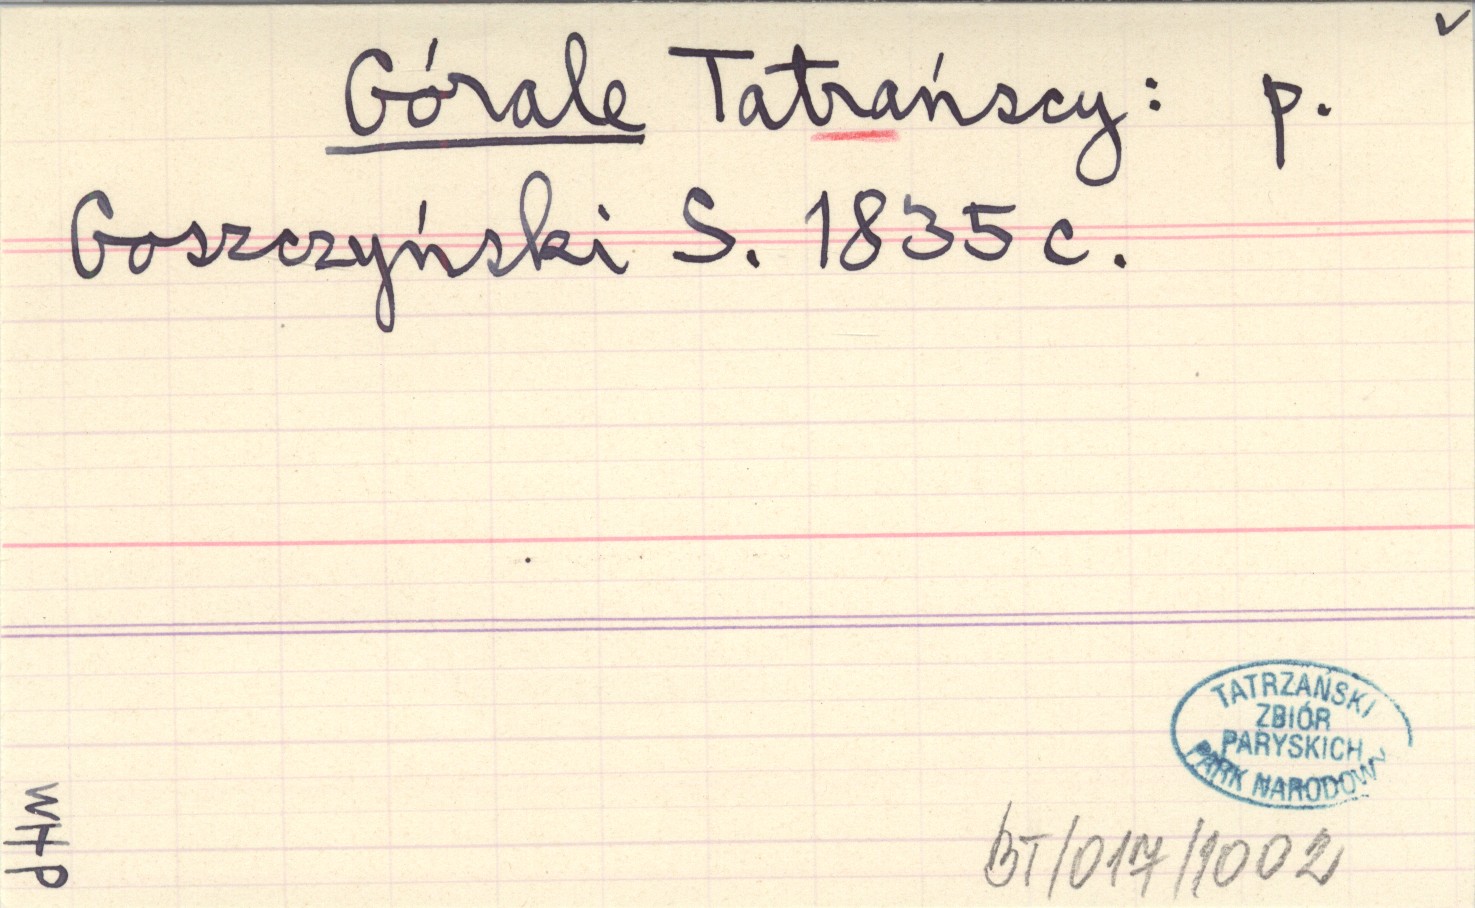 ✓
Górale Tatrańscy: p.
Goszczyński S. 1835c.
TATRZAŃSKI
ZBIÓR
PARYSKICH
PARK NARODOWY
WHP
BT/017/1002